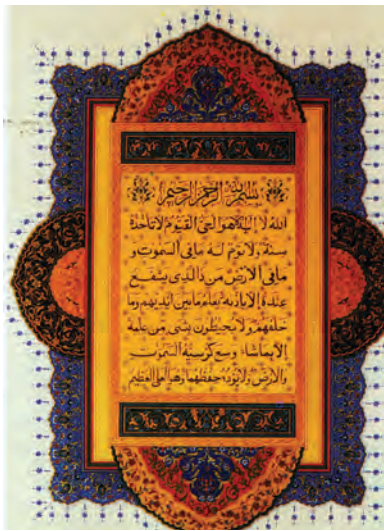 بسم الله الرحمن الرحيم
الله لا إله إلا هو الحي القيوم لا تأخذه
سنة ولا نوم له ما في السموت و
ما في الارض من ذا الذي يشفع
عنده إلا باذنه يعلم ما بين ايديهم وما
خلفهم ولا يحيطون بشئ من علمه
إلا بما شاء وسع كرسيه السموت
والارض ولا يؤده حفظهما وهو العلي العظيم